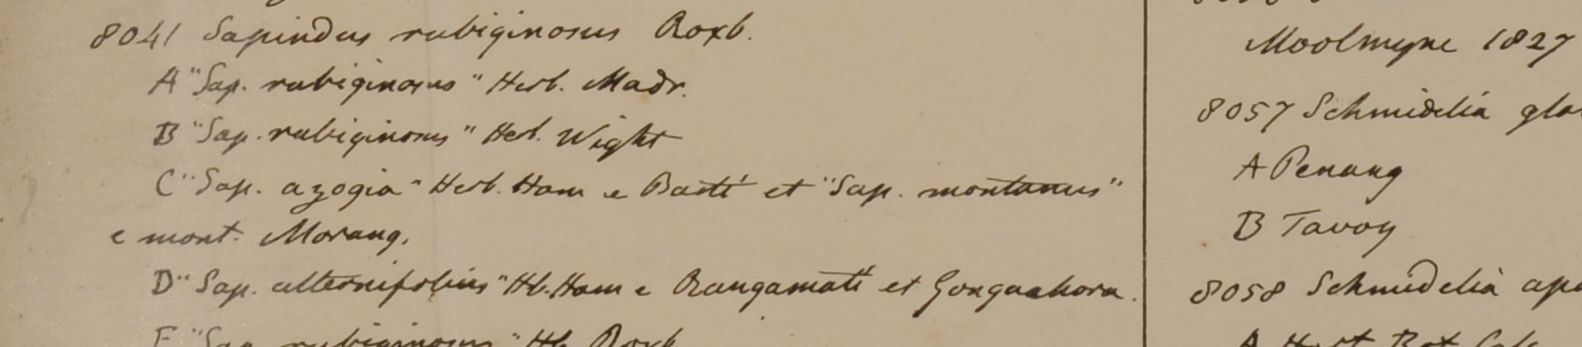 8041 Sapindus rubiginosus Roxb.
A "Sap. rubiginosus" Herb. Madr.
B "Sap. rubiginosus" Herb. Wight
C "Sap. azogia" Herb. Ham e Basti et "Sap. montanus"
e mont. Morang.
D "Sap. alternifolius" Hb. Ham e Rangamati et Gongachora.
E "Sap. rubiginosus" Hb. Roxb
Moolmyne 1827
8057 Schmidelia
A Penang
B Tavoy
8058 Schmidelia
A Hort Bot Calc